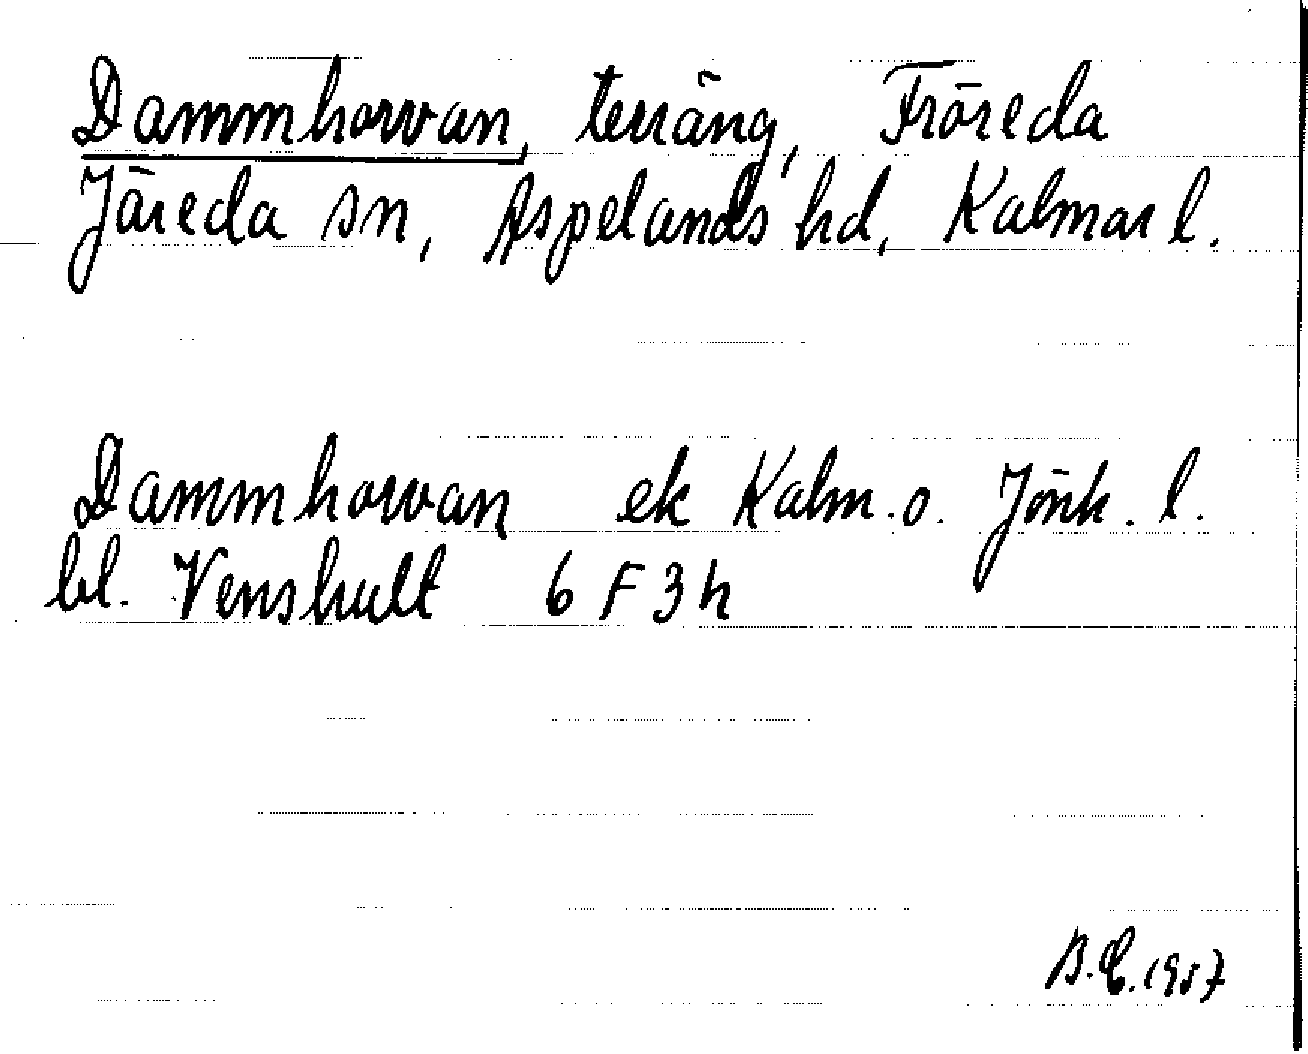 Dammhorvan, terräng, Fröreda
Järeda sn, Aspelands hd, Kalmar l.
Dammhorvan ek Kalm. o. Jönk. l.
bl. Venshult 6 F 3 h
B.E. 1957